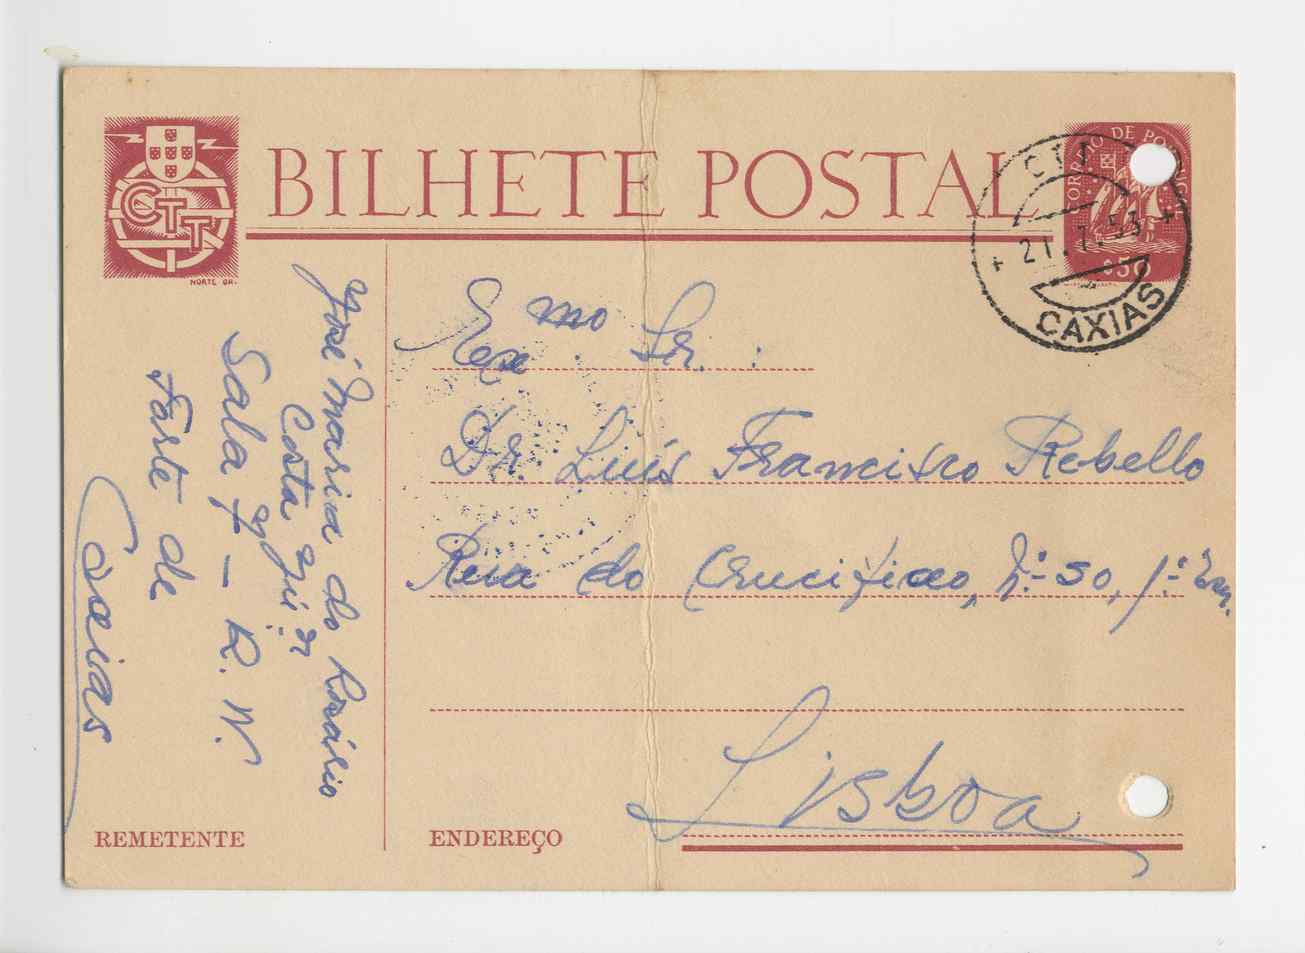 CTT
NORTE GR.
BILHETE POSTAL
CORREIO DE PORTUGAL
$50
CTT
21.7.53
CAXIAS
José Maria do Rosário
Costa
Sala 7 - R. N.
Forte de
Caxias
REMETENTE
Exmo Sr.:
Dr. Luís Francisco Rebello
Rua do Crucifixo, Nº 50, 1º
Lisboa
ENDEREÇO